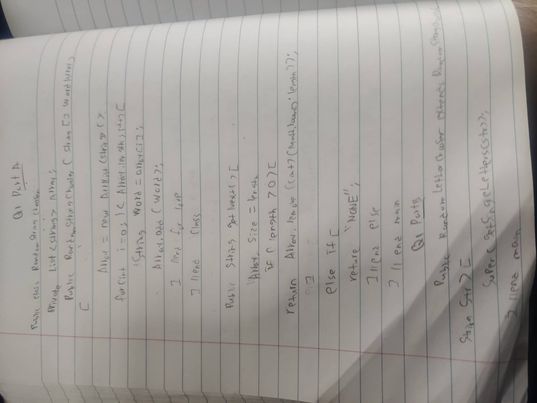 Q1 Part A
Public class Random String Chooser
Private List <String> Array;
Public Random String Chooser ( String [] wordArray)
[
Array = new ArrayList <String> ();
for (int i = 0; i < Array.length; i++) [
String word = array[i];
Array.add (word);
] //end for loop
] //end class
Public String getNext() [
Array. Size = length
if ( length > 0 ) [
return Array. (int) (Math. length));
]
else if [
return "NONE";
] //end else
] // end main
Q1 Part B
Public Random Letter Chooser extends Random String
String Str ) [
Super ( getSingleLetters(str));
] //end main